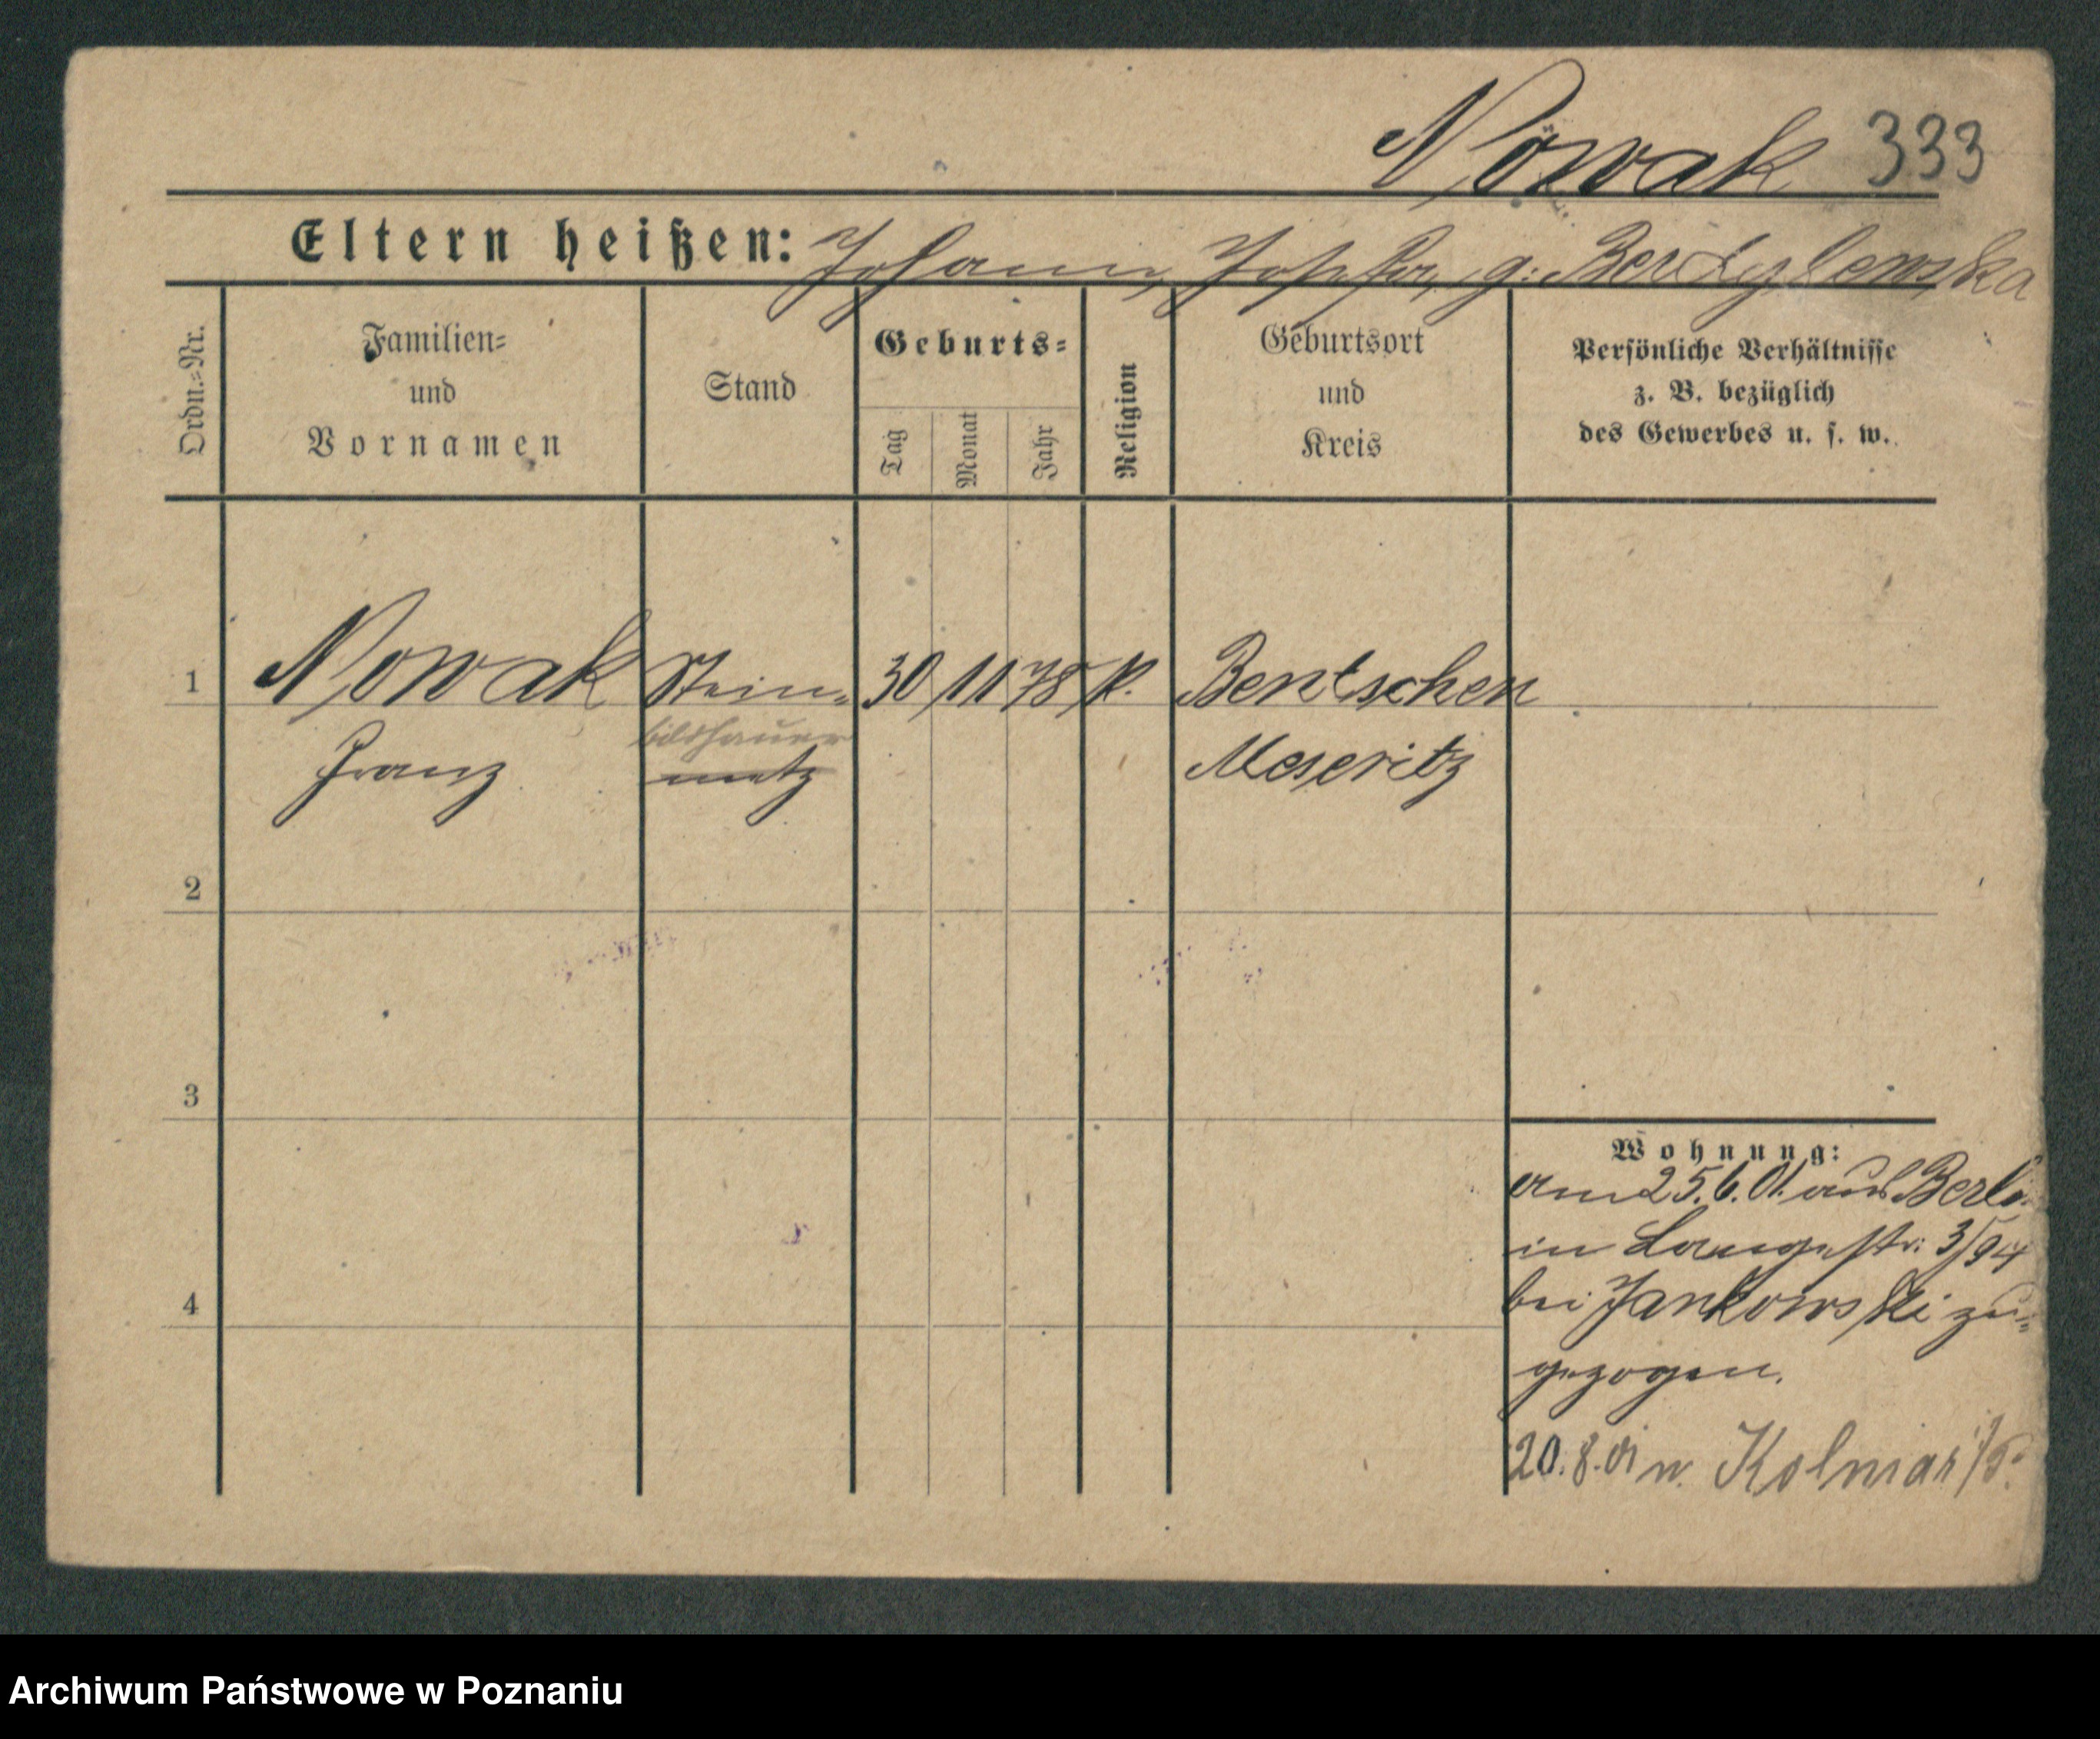 Nowak 333
Eltern heißen: Johann, Josefa, g:
Ordn.-Nr.
Familien-
und
Vornamen
Stand
Geburts-
Tag
Monat
Jahr
Religion
Geburtsort
und
Kreis
Persönliche Verhältnisse
z. B. bezüglich
des Gewerbes u. s. w.
1 Nowak Stein- 30 11 78 k. Bentschen
bildhauer
Franz metz Meseritz
2
3
4
Wohnung:
am 25.6.01. aus Berli
in Langestr. 3/94
bei Jankowski zu-
gezogen.
20.8.01 n. Kolmar i/P.
Archiwum Państwowe w Poznaniu